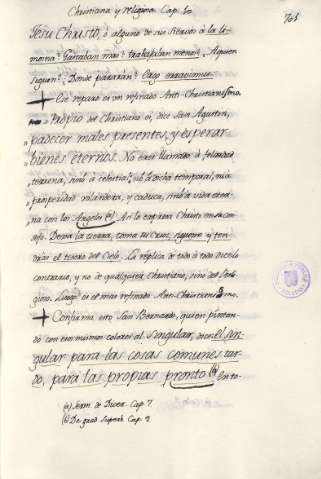 Christiana y religiosa Cap. 50
Jesu Christo, ò alguno de sus siervos à la li-
mosna? Gastaban mas? trabajaban menos? A quien
siguen? Donde pararàn?
Ese reparo es un refinado Anti-Christianismo.
Propio del Christiano es, dice San Agustin,
padecer males presentes, y esperar
bienes eternos. No està llamado à
terrena, sino à celestial; nò à dicha temporal, ni à
prosperidad volandera, y caduca, sinò à vida eter-
na con los Angeles (a). Asi lo expresa Christo en su con-
sejo. Dexa la tierra, toma tu Cruz, sigueme y ten-
dràs el tesoro del Cielo. La replica de vida à todo dice lo
contrario, y no de qualquiera Christiano, sino del Reli-
gioso. Luego es el mas refinado Anti-Christianismo.
Confirma esto San Bernardo, quien pintan-
do con sus mismos colores al singular, dice: El sin-
gular para las cosas comunes tar-
do, para las propias pronto (b). En to-
(a) Serm. de Divers. Cap. 7
(b) De grad. superb. Cap. 9